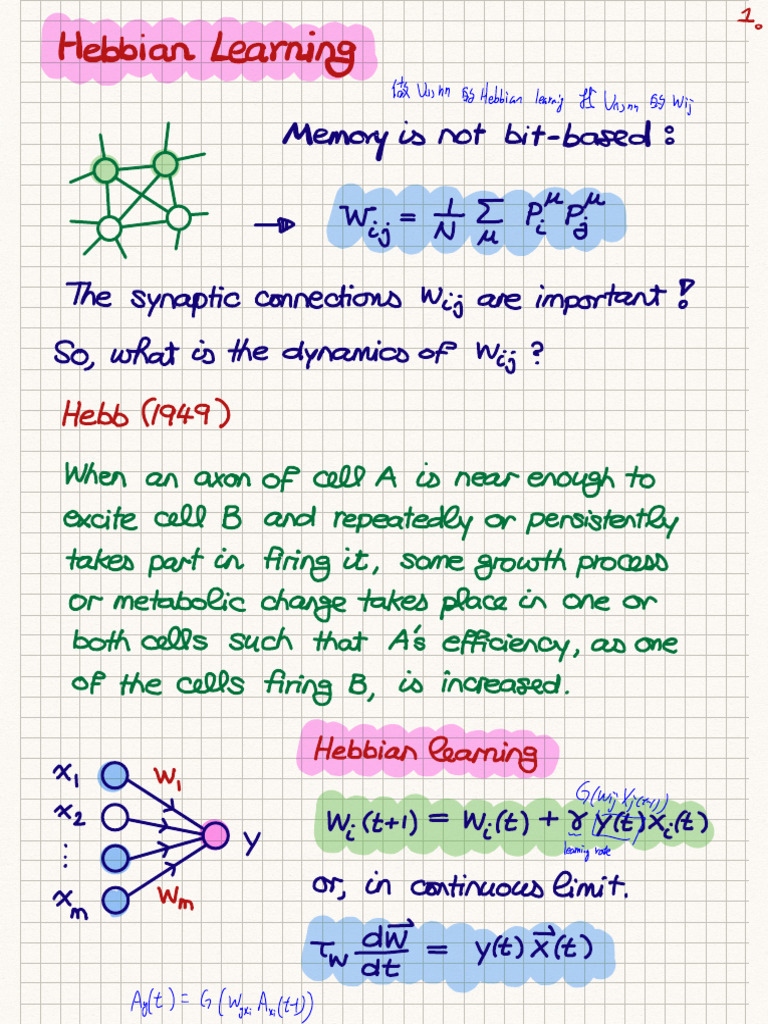 1.
Hebbian Learning
Hebbian learning
Memory is not bit-based :
W_ij = 1/N Σ_μ P_i^μ P_j^μ
The synaptic connections W_ij are important !
So, what is the dynamics of W_ij ?
Hebb (1949)
When an axon of cell A is near enough to
excite cell B and repeatedly or persistently
takes part in firing it, some growth process
or metabolic change takes place in one or
both cells such that A's efficiency, as one
of the cells firing B, is increased.
Hebbian learning
x_1 W_1
x_2
⋮
x_m W_m
y
G(W_ij X_j(t+1))
W_i (t+1) = W_i(t) + γ y(t) x_i(t)
learning rate
or, in continuous limit.
τ_w dW⃗/dt = y(t) x⃗(t)
A_y(t) = G(W_yxi A_xi(t-1))